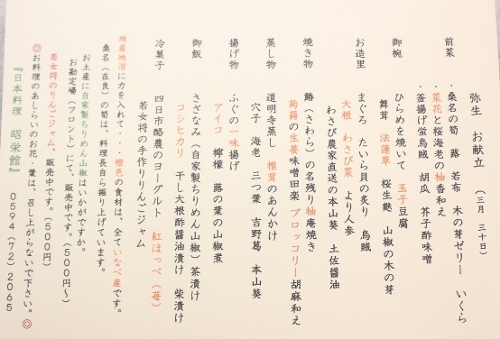 弥生 お献立 (三月 三十日)
前菜
・桑名の筍 蕗 若布 木の芽ゼリー いくら
・菜花と桜海老の柚香和え
・釜揚げ蛍烏賊 胡瓜 芥子酢味噌
御椀
ひらめを焼いて 玉子豆腐
舞茸 法蓮草 桜生麩 山椒の木の芽
お造里
まぐろ たいら貝の炙り 烏賊
大根 わさび菜 より人参
わさび農家直送の本山葵 土佐醤油
焼き物
鰆(さわら)の名残り柚庵焼き
蒟蒻の生姜味噌田楽 ブロッコリー胡麻和え
蒸し物
道明寺蒸し 椎茸のあんかけ
穴子 海老 三つ葉 吉野葛 本山葵
揚げ物
ふぐの一味揚げ
アイコ 檸檬 蕗の葉の山椒煮
御飯
さざなみ(自家製ちりめん山椒)茶漬け
コシヒカリ 干し大根酢醤油漬け 柴漬け
冷菓子
四日市酪農のヨーグルト 紅ほっぺ(苺)
若女将の手作りりんごジャム
地産地消に力を入れて・・橙色の食材は、全ていなべ産です。
桑名(在良)の筍は、料理長自ら掘り上げています。
お土産に自家製ちりめん山椒はいかがですか。
お勘定場(フロント)にて、販売中です。(500円~)
若女将のりんごジャム、販売中です。(500円)
◎お料理のあしらいのお花・葉は、召し上がらないで下さい。◎
『日本料理 昭栄館』 0594(72)2065